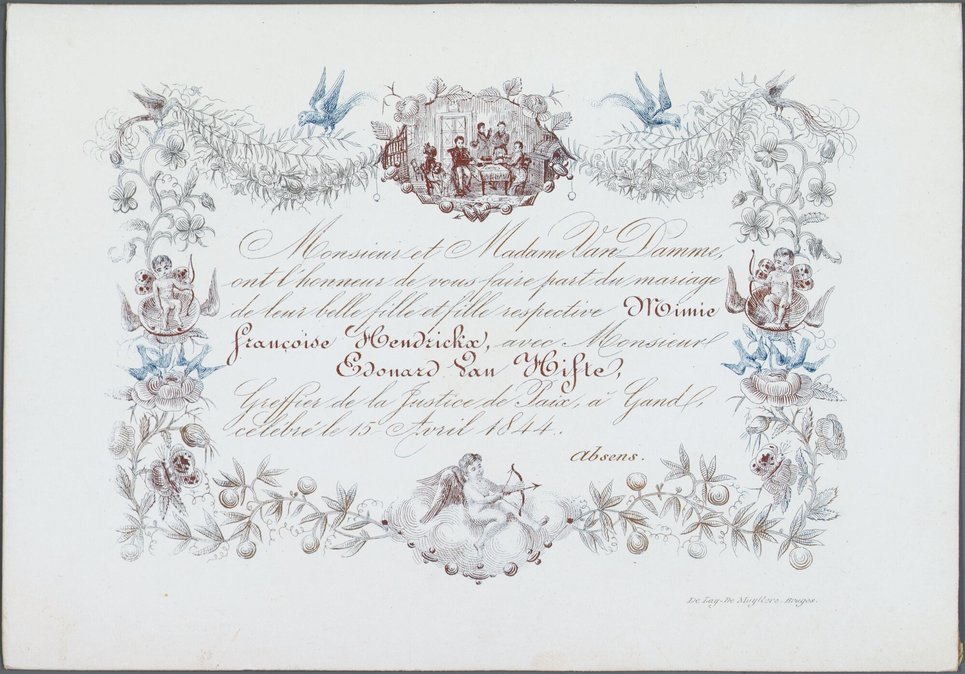 Monsieur et Madame Van Damme,
ont l'honneur de vous faire part du mariage
de leur belle fille et fille respective Mimie
Françoise Hendrickx, avec Monsieur
Edouard Van Hifte,
Greffier de la Justice de Paix, à Gand,
célébré le 15 Avril 1844.
absens.
De Lay-De Muyttere. Bruges.